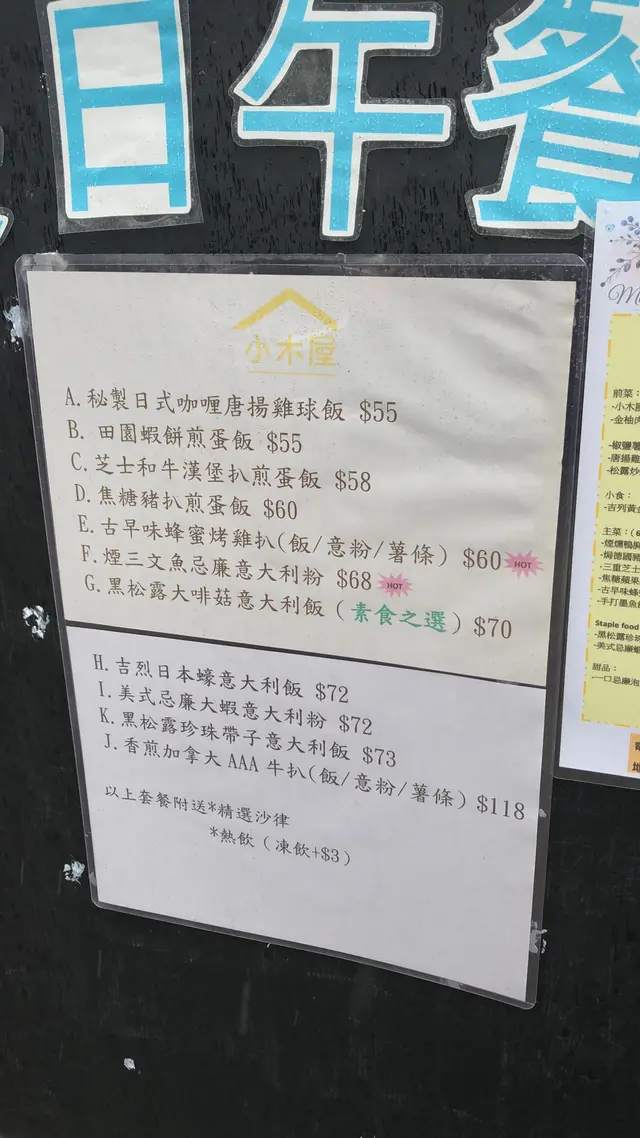 日午餐
小木屋
A.秘製日式咖喱唐揚雞球飯 $55
B. 田園蝦餅煎蛋飯 $55
C.芝士和牛漢堡扒煎蛋飯 $58
D.焦糖豬扒煎蛋飯 $60
E.古早味蜂蜜烤雞扒(飯/意粉/薯條) $60 HOT
F.煙三文魚忌廉意大利粉 $68 HOT
G.黑松露大啡菇意大利飯 (素食之選) $70
H.吉烈日本蠔意大利飯 $72
I.美式忌廉大蝦意大利粉 $72
K.黑松露珍珠帶子意大利飯 $73
J.香煎加拿大 AAA 牛扒(飯/意粉/薯條) $118
以上套餐附送*精選沙律
*熱飲 (凍飲+$3)
前菜：
-小木
-金柚
-椒鹽
-唐揚雞
-松露炒
小食：
-吉列黃金
主菜：(6
-煙燻鴨胸
-焗德國豬
-三重芝士
-焦糖蘋果
-古早味蜂
-手打墨魚
Staple food
-黑松露珍
-美式忌廉
甜品：
-一口忌廉泡